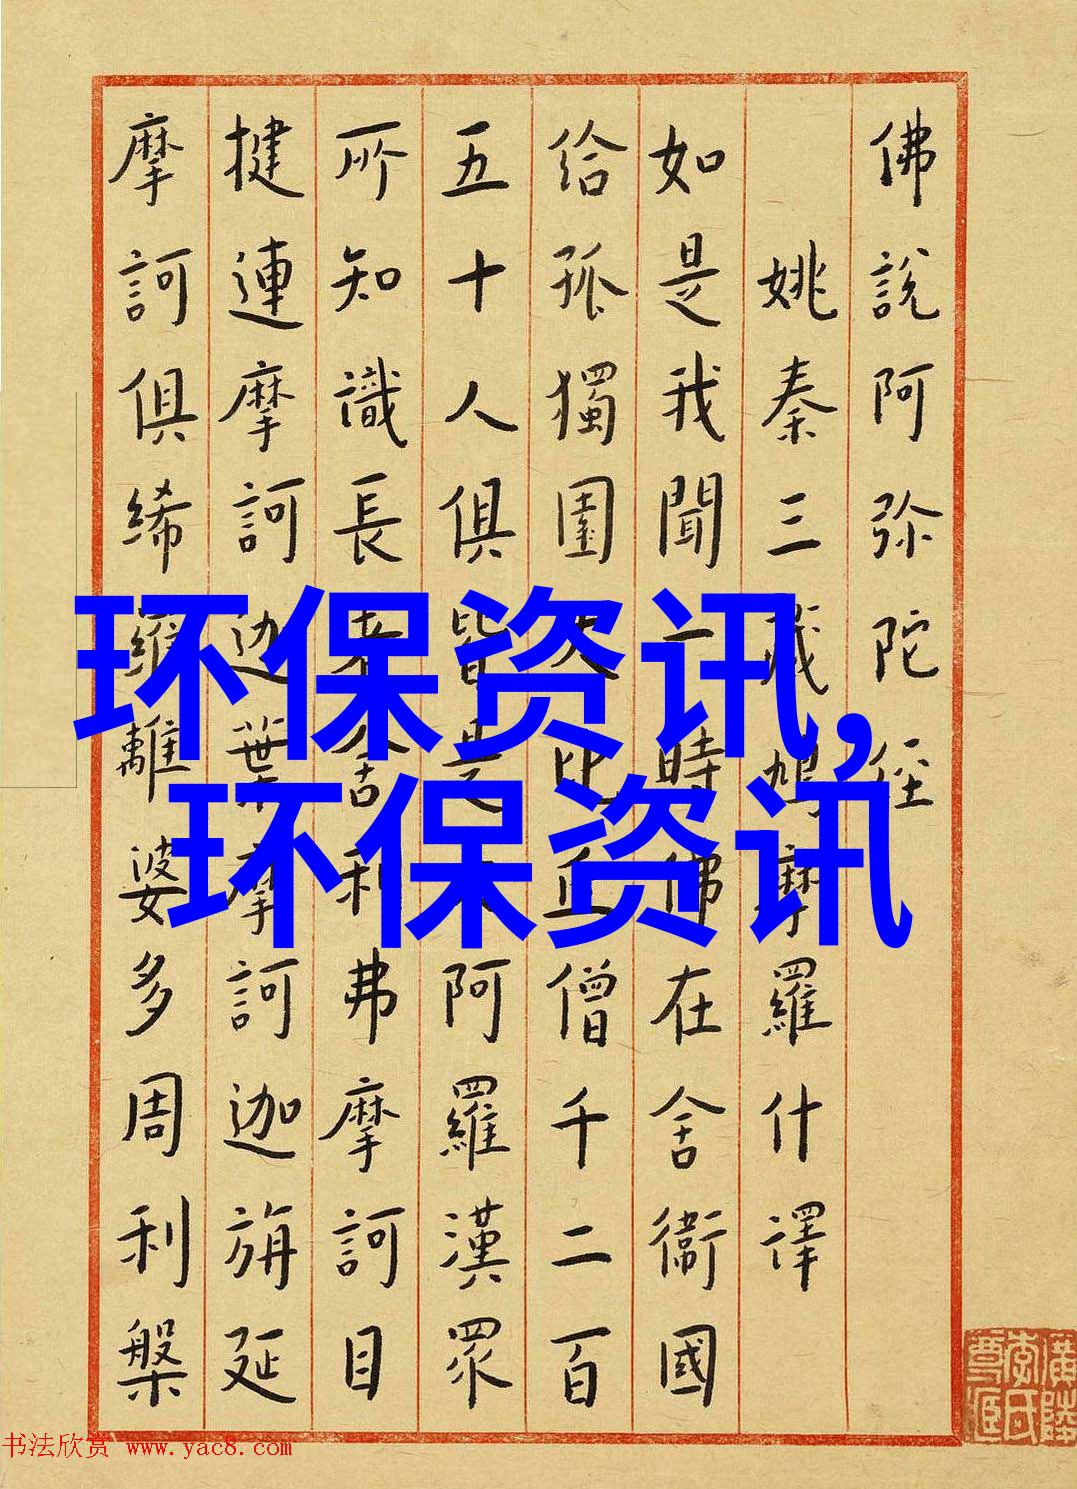 佛說阿弥陀經
姚秦三藏鳩摩羅什譯
如是我聞一時佛在舍衞國
給孤獨園大比丘僧千二百
五十人俱皆是大阿羅漢眾
所知識長老舍利弗摩訶目
揵連摩訶迦葉摩訶迦旃延
摩訶俱絺羅離婆多周利槃
环保资讯,
环保资讯
书法欣赏 www.yac8.com